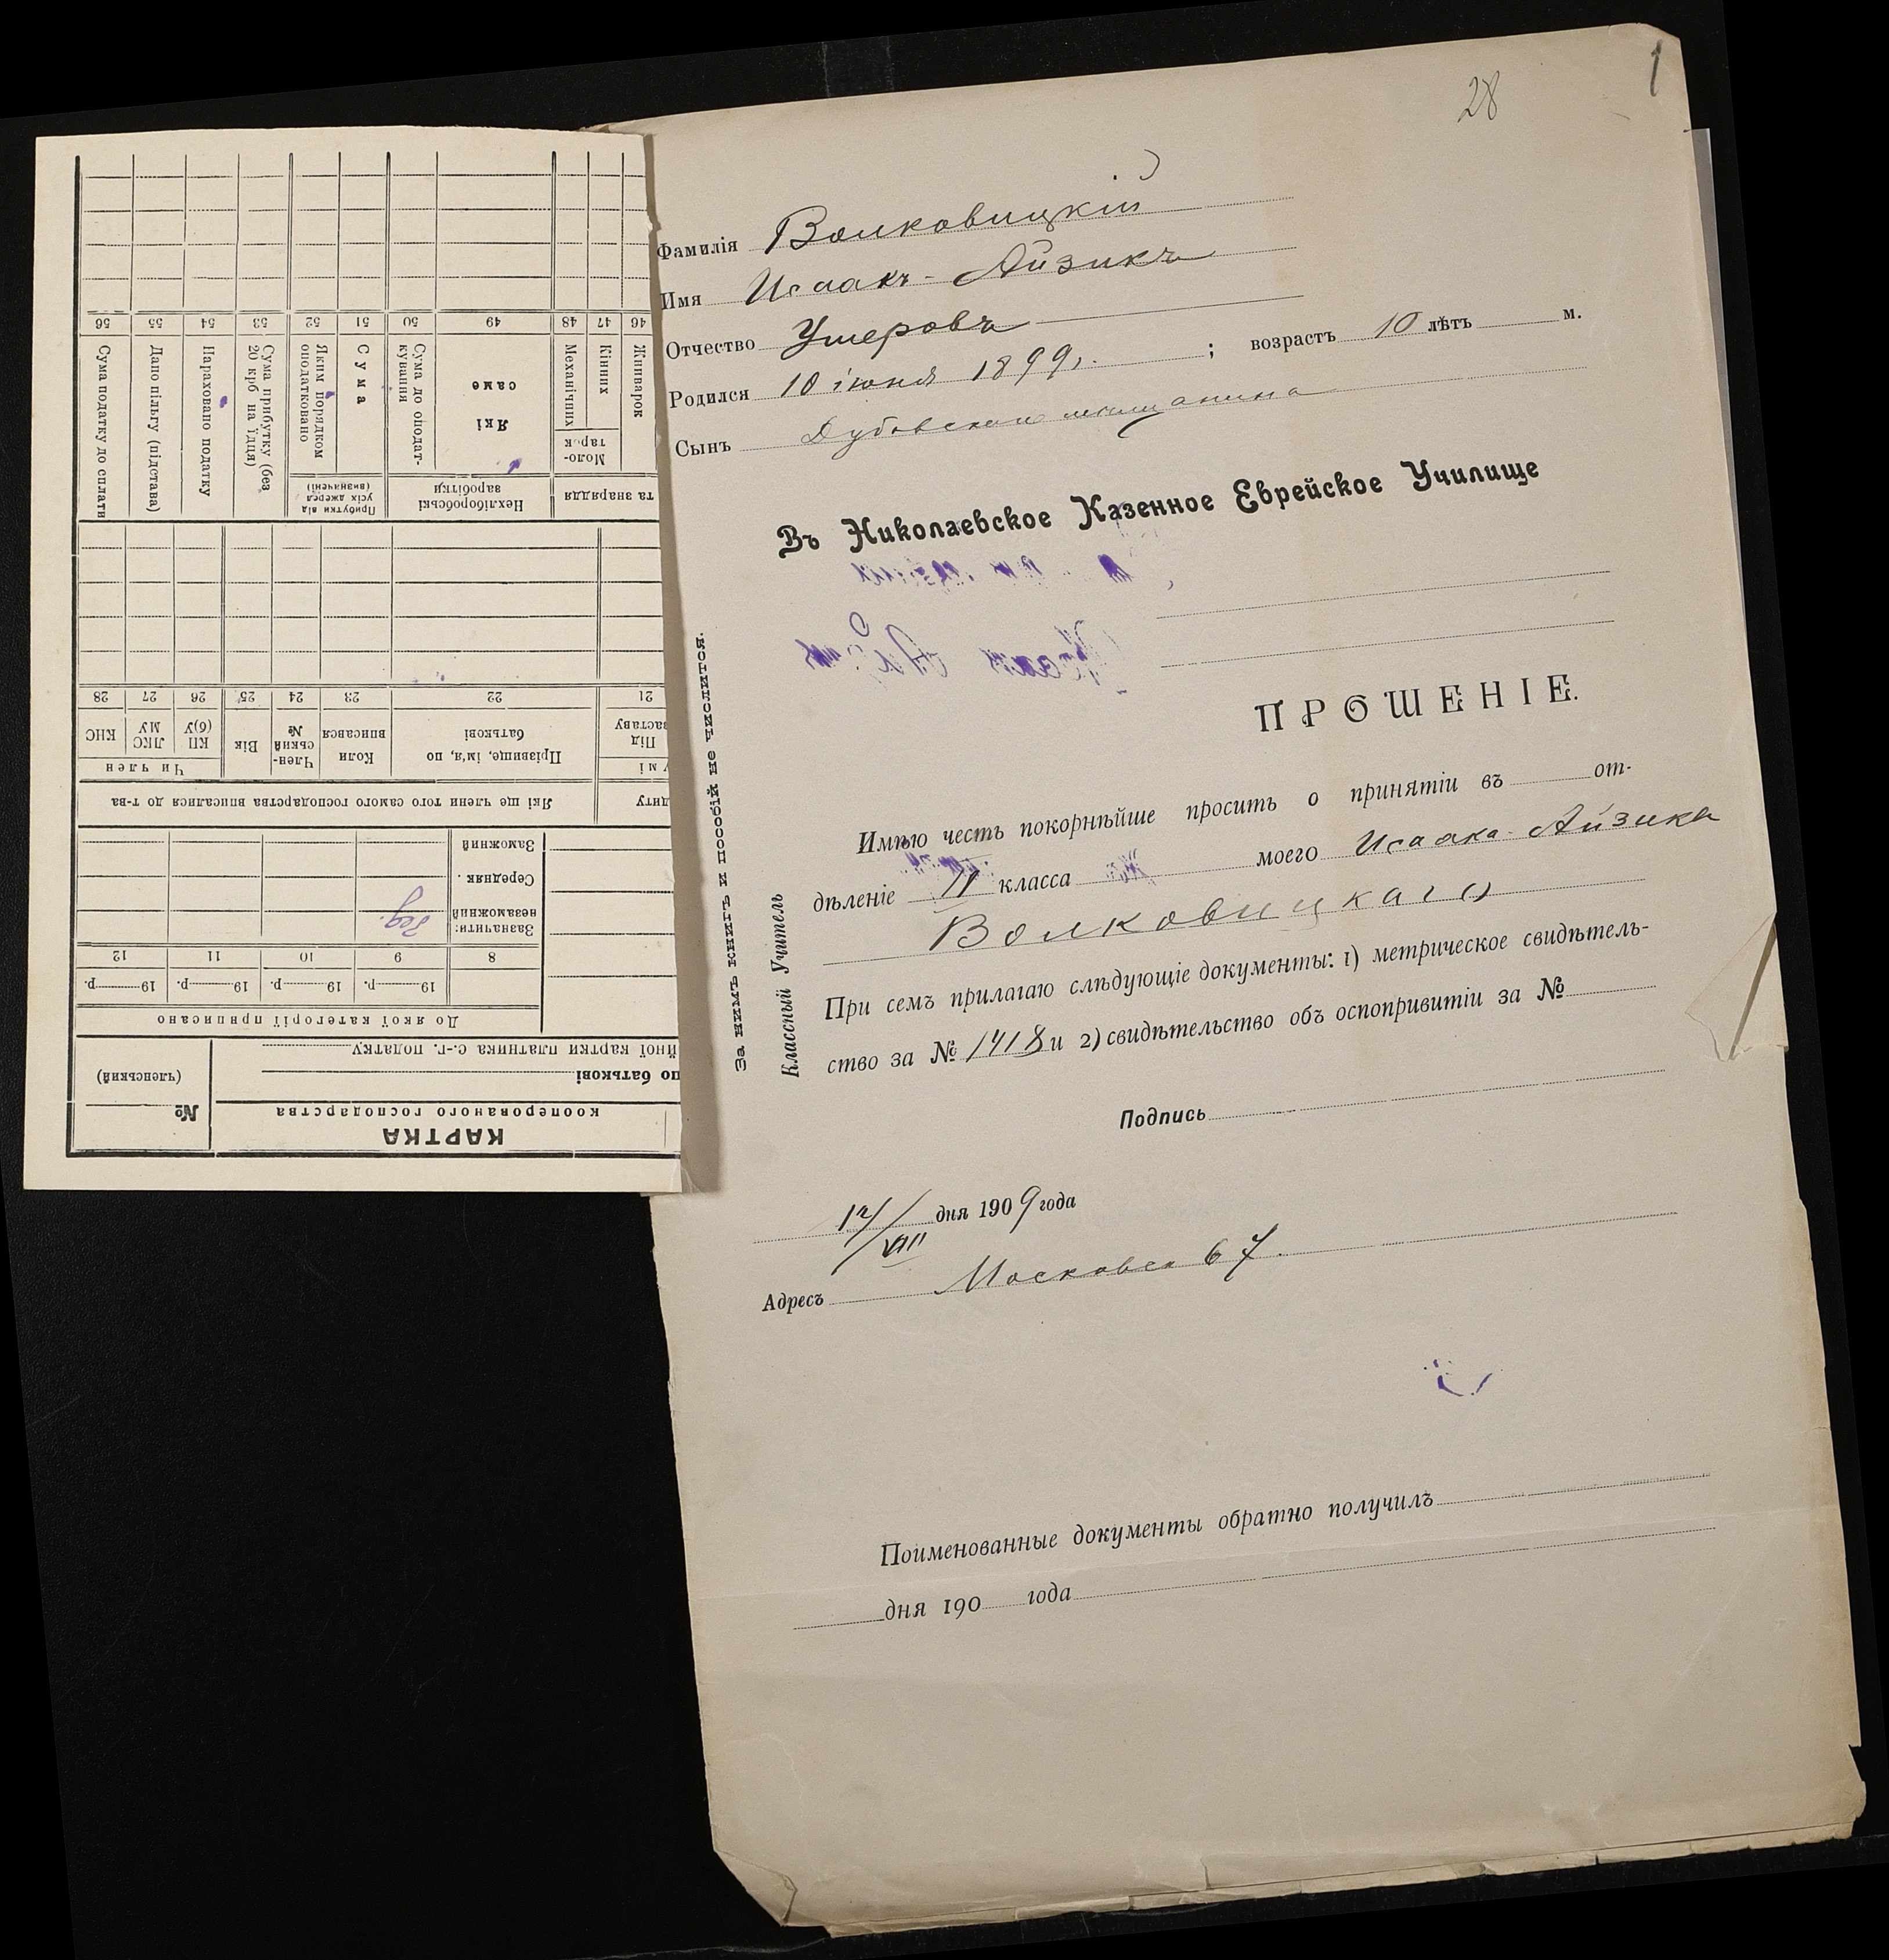 28
1
Фамилія Волковицкій
Имя Исаакъ-Айзикъ
Отчество Ушеровъ
Родился 10 іюня 1899 г. ; возрастъ 10 лѣтъ м.
Сынъ Дубовскаго мѣщанина
Въ Николаевское Казенное Еврейское Училище
ПРОШЕНІЕ.
Имѣю честь покорнѣйше просить о принятіи въ от-
дѣленіе II класса моего Исаака-Айзика
Волковицкаго
При семъ прилагаю слѣдующіе документы: 1) метрическое свидѣтель-
ство за № 1418 и 2) свидѣтельство объ оспопривитіи за №
Подпись
12/VIII дня 1909 года
Адресъ Московск 67.
Поименованные документы обратно получилъ
дня 190 года
За нимъ книгъ и пособій не числится.
Классный Учитель
КАРТКА
кооперованого господарства
№
(членський)
по батькові
йної картки платника с.-г. податку
До якої категорії приписано
19 р. 19 р. 19 р. 19 р.
8 9 10 11 12
Зазначити:
незаможний
Середняк.
Заможний
Які ще члени того самого господарства вписалися до т-ва
Під
заставу
Прізвище, ім'я, по
батькові
Коли
вписався
Член-
ський
№
Вік
Чи член
КП
(б)У
ЛКС
МУ
КНС
21 22 23 24 25 26 27 28
та знаряддя
Нехліборобські
заробітки
Прибутки від
усіх джерел
(визначені)
Жниварок
Моло-
тарок
Кінних
Механічних
Які
саме
Сума до оподат-
кування
Сума
Яким порядком
оподатковано
Сума прибутку (без
20 крб на їдця)
Нараховано податку
Дано пільгу (підстава)
Сума податку до сплати
46 47 48 49 50 51 52 53 54 55 56